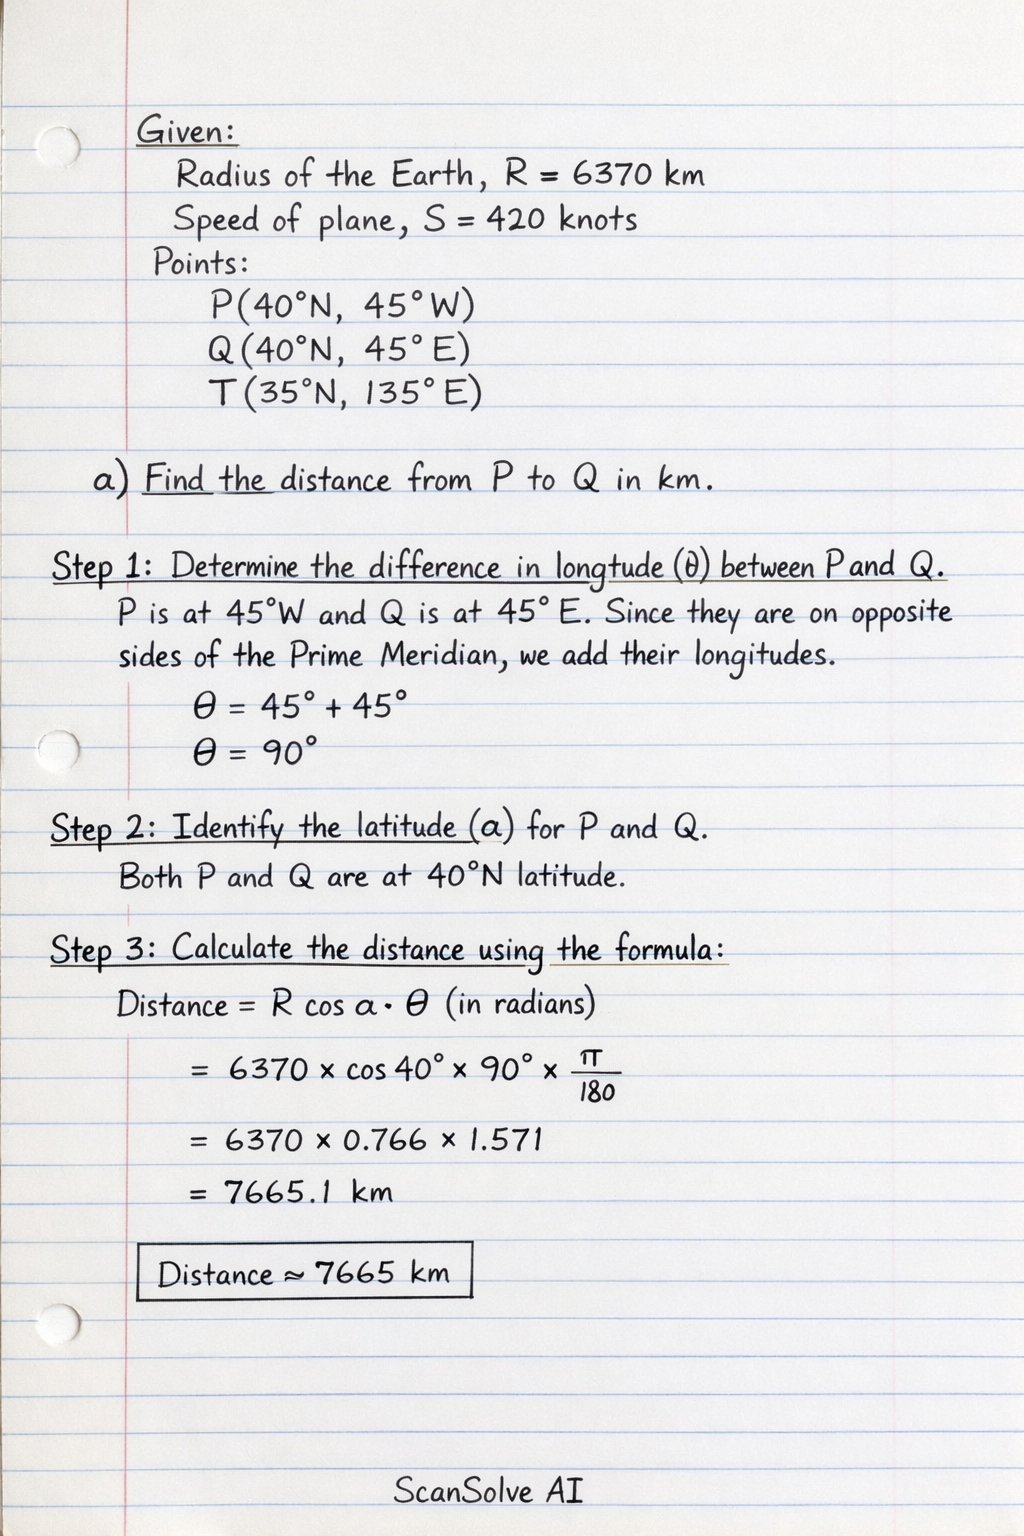 Given:
Radius of the Earth, R = 6370 km
Speed of plane, S = 420 knots
Points:
P(40°N, 45°W)
Q(40°N, 45°E)
T(35°N, 135°E)
a) Find the distance from P to Q in km.
Step 1: Determine the difference in longtude (θ) between P and Q.
P is at 45°W and Q is at 45°E. Since they are on opposite
sides of the Prime Meridian, we add their longitudes.
θ = 45° + 45°
θ = 90°
Step 2: Identify the latitude (a) for P and Q.
Both P and Q are at 40°N latitude.
Step 3: Calculate the distance using the formula:
Distance = R cos a · θ (in radians)
= 6370 × cos 40° × 90° × π/180
= 6370 × 0.766 × 1.571
= 7665.1 km
Distance ≈ 7665 km
ScanSolve AI